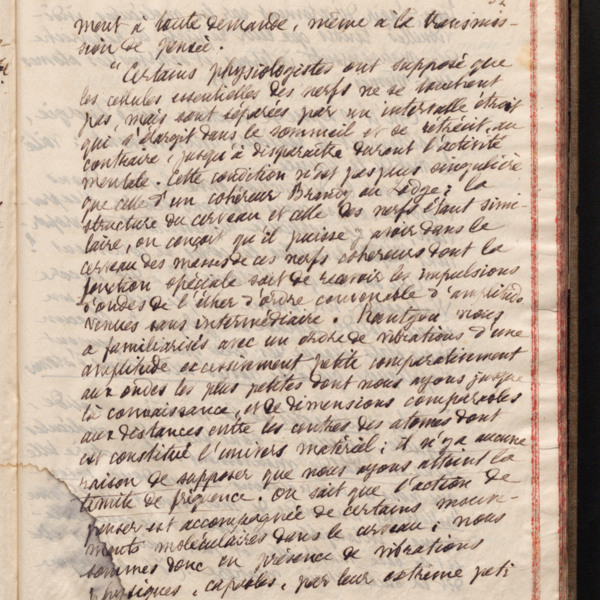 ment à toute demande, même à la transmis-
sion de pensée.
"Certains physiologistes ont supposé que
les cellules essentielles des nerfs ne se touchent
pas mais sont séparées par un intervalle étroit
qui s'élargit dans le sommeil et se rétrécit, au
contraire, jusqu'à disparaître durant l'activité
mentale. Cette condition n'est pas plus singulière
que celle d'un cohéreur Branly ou Lodge; la
structure du cerveau et celle des nerfs étant simi-
laire, on conçoit qu'il puisse y avoir dans le
cerveau des masses de ces nerfs cohéreurs dont la
fonction spéciale soit de recevoir les impulsions
d'ondes de l'éther d'ordre convenable d'amplitude
venues sans intermédiaire. Rœntgen nous
a familiarisés avec un ordre de vibrations d'une
amplitude excessivement petite comparativement
aux ondes les plus petites dont nous ayons jusque
là connaissance, et de dimensions comparables
aux distances entre les centres des atomes dont
est constitué l'univers matériel; il n'y a aucune
raison de supposer que nous ayons atteint la
limite de fréquence. On sait que l'action de
penser est accompagnée de certains mouve-
ments moléculaires dans le cerveau; nous
sommes donc en présence de vibrations
physiques, capables, par leur extrême peti